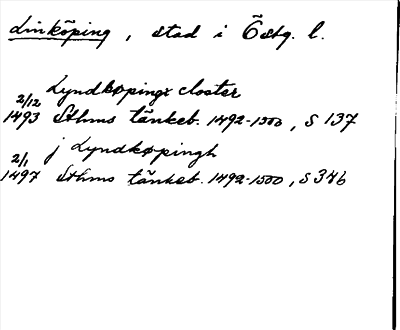 Linköping, stad i Östg. l.
Lyndkøpingx closter
2/12
1493 Sthms tänkeb. 1492-1500, S 137
j Lyndkøpingh
2/1
1497 Sthms tänkeb. 1492-1500, S 346